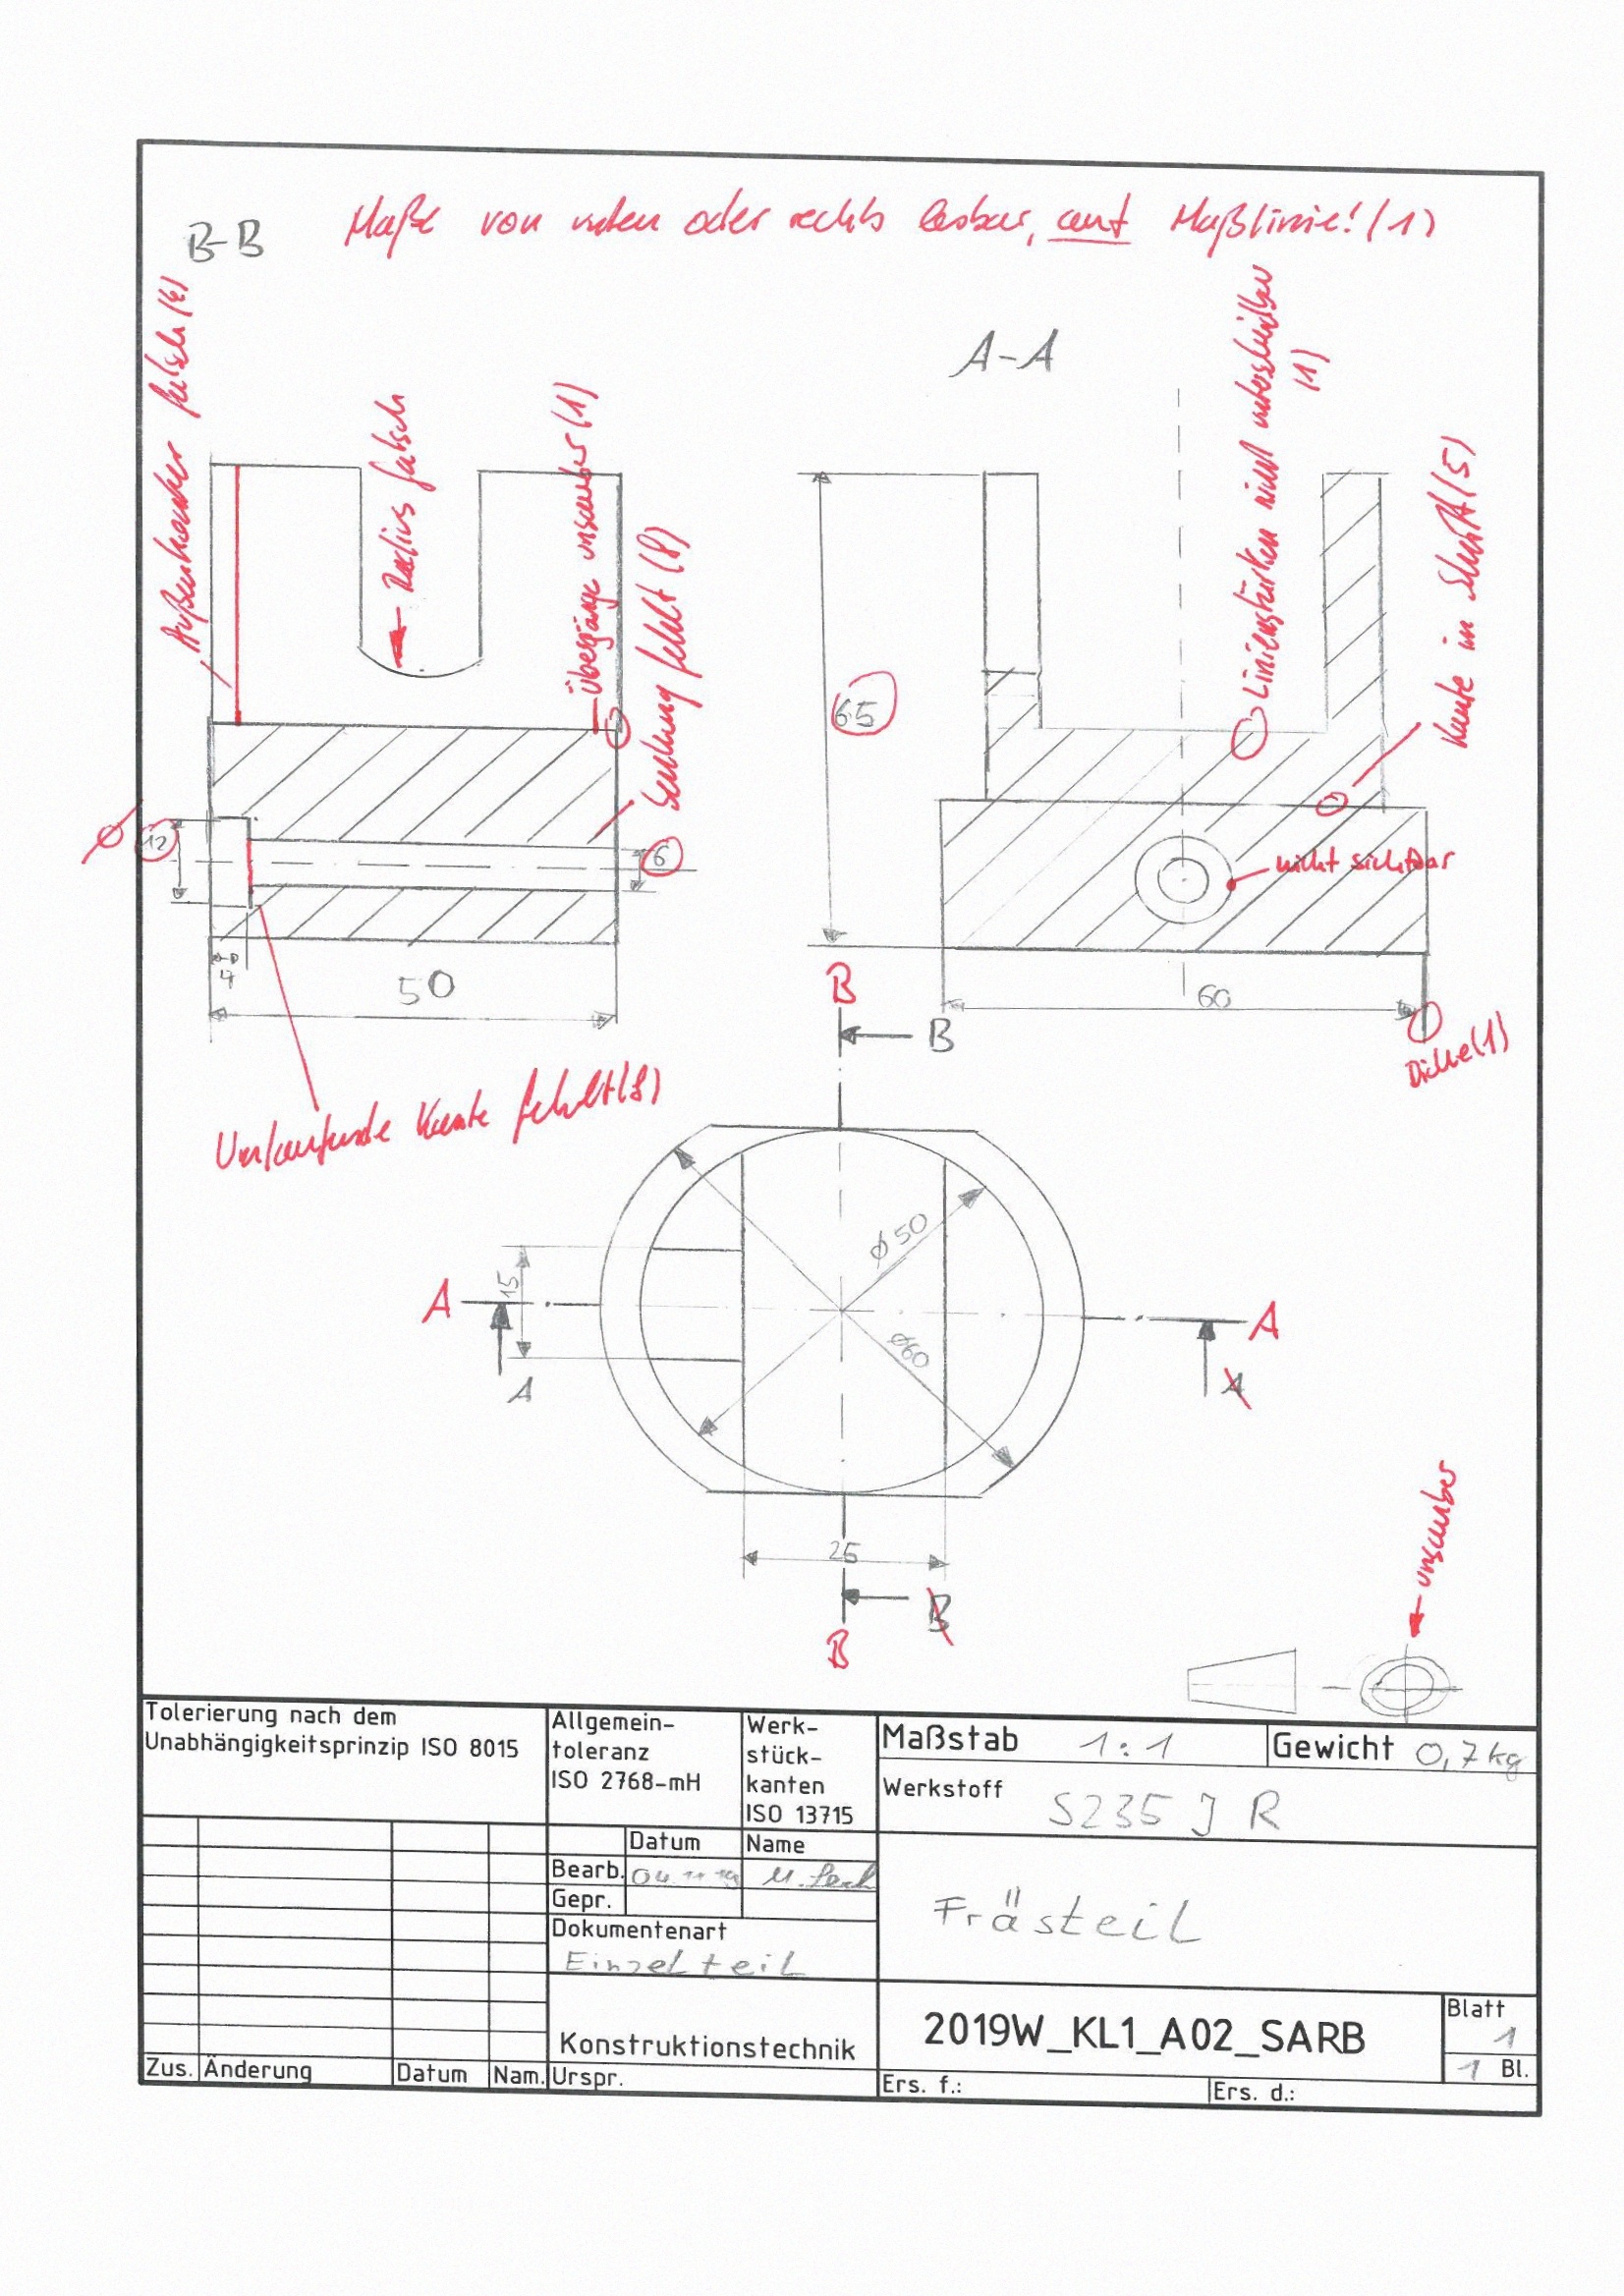 B-B
Maße von unten oder rechts lesbar, auf Maßlinie! (1)
A-A
Außenkontur falsch (4)
Radius falsch
Übergänge unsauber (1)
Senkung fehlt (8)
Linienstärken nicht unterscheidbar
(1)
Kante im Schnitt (5)
65
⌀ 12
6
nicht sichtbar
4
50
60
B
B
Dicke (1)
Umlaufende Kante fehlt (8)
⌀50
A
15
A
⌀60
A
A
25
B
B
unsauber
Tolerierung nach dem
Unabhängigkeitsprinzip ISO 8015
Allgemein-
toleranz
ISO 2768-mH
Werk-
stück-
kanten
ISO 13715
Maßstab 1:1
Gewicht 0,7kg
Werkstoff S235 J R
Datum Name
Bearb. 04.11.19
Gepr.
Dokumentenart
Einzelteil
Frästeil
Konstruktionstechnik
2019W_KL1_A02_SARB
Blatt
1
1 Bl.
Zus. Änderung Datum Nam. Urspr.
Ers. f.: Ers. d.: